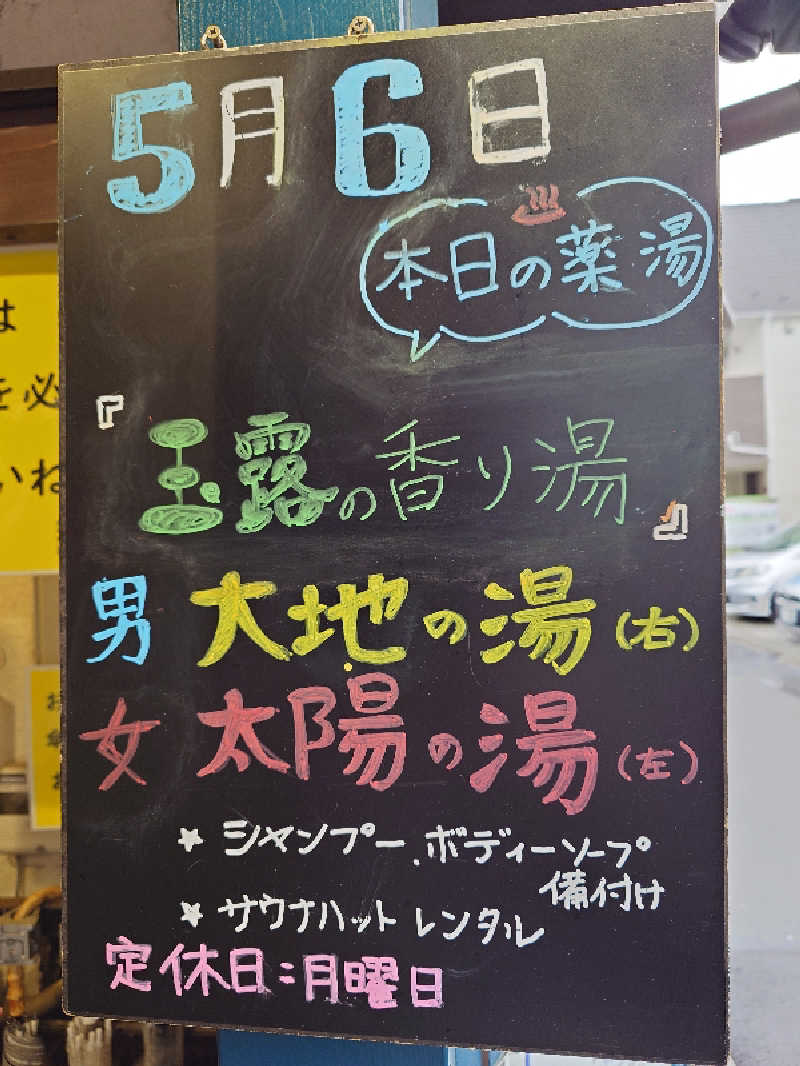 5月6日
♨
本日の薬湯
『玉露の香り湯』
男 大地の湯(右)
女 太陽の湯(左)
★ シャンプー、ボディーソープ
備付け
★ サウナハット レンタル
定休日:月曜日
は
を必
いね